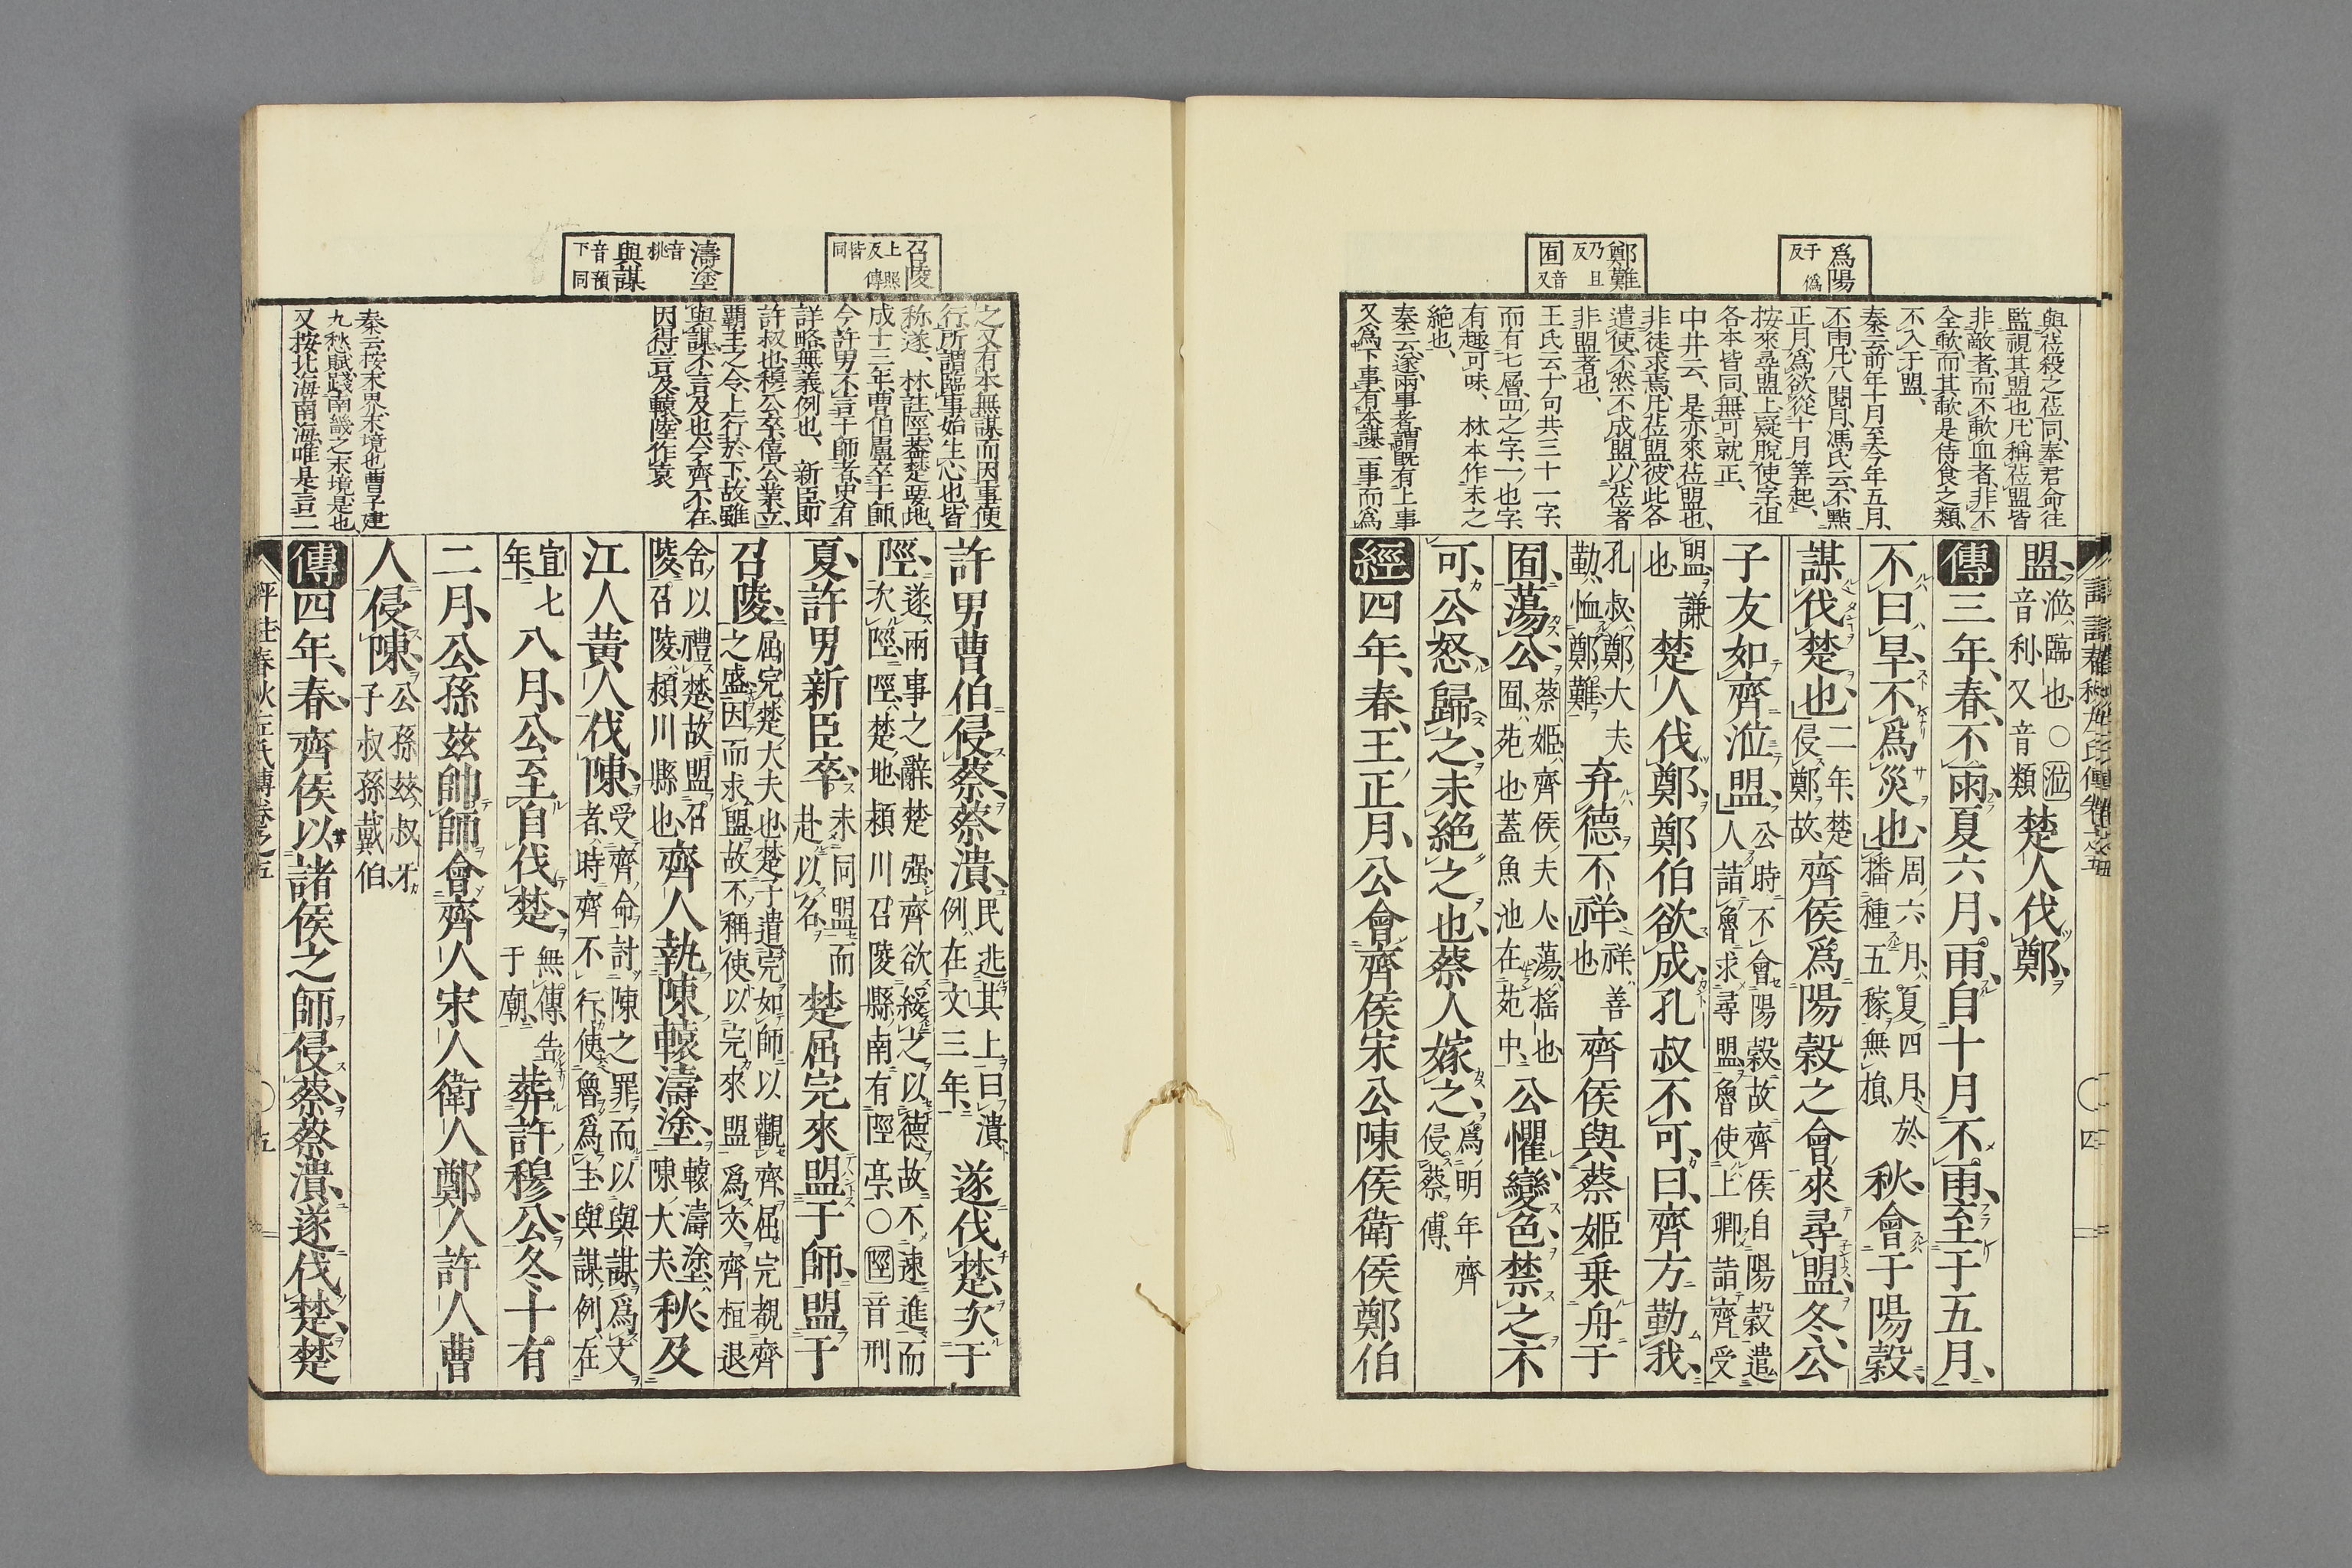 爲陽
于僞反
鄭難
乃且反
囿
音又
與莅殺之莅同奉君命往
監視其盟也凡稱莅盟皆
非敵者而不歃血者非不
全歃而其歃是侍食之類
不入于盟
秦云前年十月至今年五月
不雨凡八閱月馮氏云不點
正月爲欲從十月筭起
按來尋盟上疑脫使字但
各本皆同無可就正
中井云是亦來莅盟也
非徒求焉凡莅盟彼此各
遣使不然不成盟以莅者
非盟者也
王氏云十句共三十一字
而有七層四之字一也字
有趣可味 林本作未之
絕也
秦云遂兩事者謂既有上事
又爲下事有本謀一事而爲
盟涖臨也〇涖音利又音類楚人伐鄭
傳三年春不雨夏六月雨自十月不雨至于五月
不曰旱不爲災也周六月夏四月於播種五稼無損秋會于陽穀
謀伐楚也二年楚侵鄭故齊侯爲陽穀之會求尋盟冬公
子友如齊涖盟公時不會陽穀故齊侯自陽穀遣人詣魯求尋盟魯使上卿詣齊受
盟謙也楚人伐鄭鄭伯欲成孔叔不可曰齊方勤我
孔叔鄭大夫勤恤鄭難弃德不祥祥善也齊侯與蔡姬乗舟于
囿蕩公蔡姬齊侯夫人蕩搖也囿苑也蓋魚池在苑中公懼變色禁之不
可公怒歸之未絕之也蔡人嫁之爲明年齊侵蔡傳
經四年春王正月公會齊侯宋公陳侯衛侯鄭伯
召陵
上照反傳皆同
濤塗
音桃
與謀
音預下同
之又有本無謀而因事便
行所謂臨事始生心也皆
称遂 林註陘蓋楚要地
成十三年曹伯盧卒于師
今許男不言于師者史有
詳略無義例也 新臣即
許叔也穆公卒僖公業立
霸主之令上行於下故雖
與謀不言及也今齊不在
因得言及轅陸作袁
秦云按末界末境也曹子建
九愁賦踐南畿之末境是也
又按北海南海唯是言二
許男曹伯侵蔡蔡潰民逃其上曰潰例在文三年遂伐楚次于
陘遂兩事之辭楚强齊欲綏之以德故不速進而次陘陘楚地潁川召陵縣南有陘亭〇陘音刑
夏許男新臣卒未同盟而赴以名楚屈完來盟于師盟于
召陵屈完楚大夫也楚子遣完如師以觀齊屈完覩齊之盛因而求盟故不稱使以完來盟爲文齊桓退
舍以禮楚故盟召陵召陵潁川縣也齊人執陳轅濤塗轅濤塗陳大夫秋及
江人黃人伐陳受齊命討陳之罪而以與謀爲文者時齊不行使魯爲主與謀例在
宣七年八月公至自伐楚無傳告于廟葬許穆公冬十有
二月公孫茲帥師會齊人宋人衛人鄭人許人曹
人侵陳公孫茲叔牙子叔孫戴伯
傳四年春齊侯以諸侯之師侵蔡蔡潰遂伐楚楚